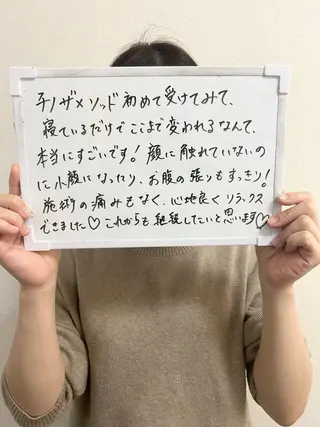 チノザメソッド初めて受けてみて、
寝ているだけでここまで変われるなんて、
本当にすごいです！顔に触れていないの
に小顔になったり、お腹の張りもすっきり！
施術の痛みもなく、心地良くリラックス
できました♡これからも継続したいと思います♡